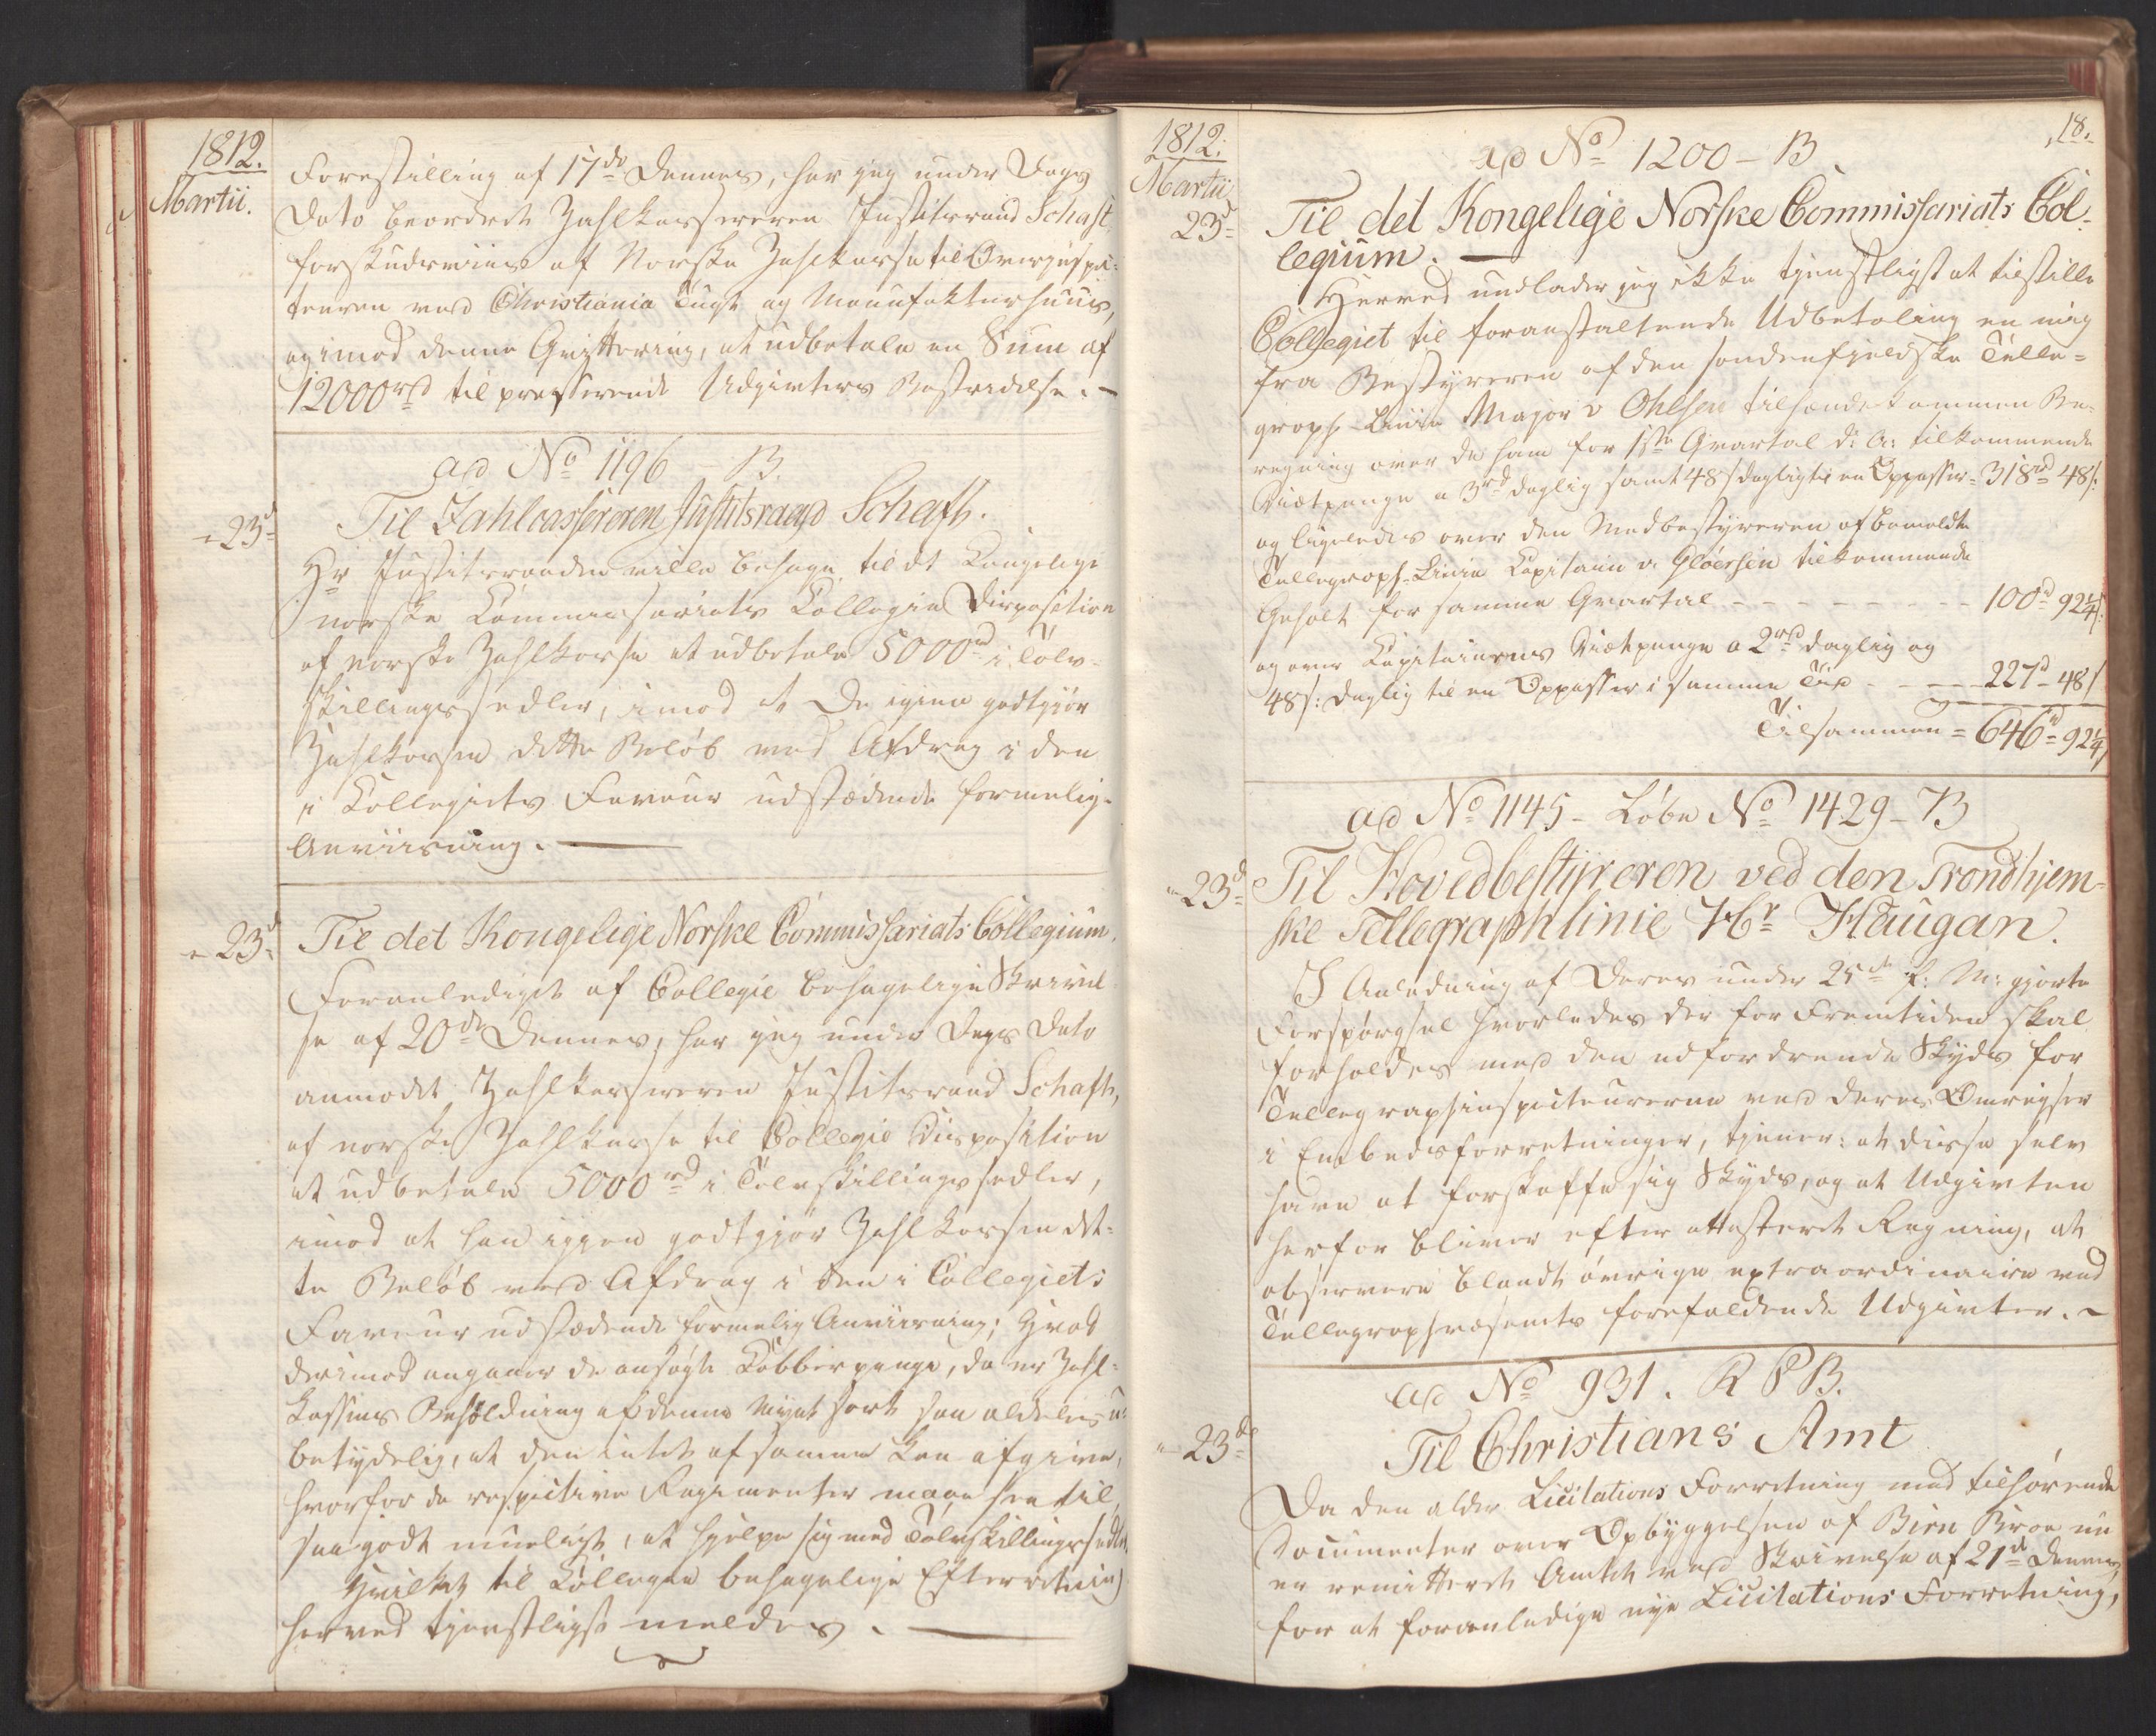 1812.
Martii.
Forestilling af 17de Dennes, har jeg under Dags
Dato beordret Zahlkasserer Justitsraad Schaft,
forskudsviis af Norske Zahlkasse til Overinspec=
teuren ved Christiania Tugt og Manufakturhuus,
agimod denne Qvittering, at udbetale en Sum af
12000rd til presserende Udgivters Bestridelse. -
ad No 1196 - B.
- 23d
Til Zahlcassereren Justitsraad Schafft.
Hr Justitsraaden ville behage til det Kongelige
norske Commissariats Collegies Disposition
af norske Zahlkasse at udbetale 5000rd i Tolv-
skillingssedler, imod at De igien godtgjør
Zahlkassen dette Beløb ved Afdrag i den
i Collegiets Faveur udstædende formelig
Anviisning. -
- 23d
Til det Kongelige Norske Commissariats Collegium.
Foranlediget af Collegie behagelige Skrivel
se af 20de Dennes, har jeg under Dags Dato
anmodet Zahlkassereren Justitsraad Schafft,
af norske Zahlkasse til Collegie Disposition
at udbetale 5000rd i Tolvskillingssedler,
imod at han igjen godtgjør Zahlkassen det=
te Beløb ved Afdrag i den i Collegiets
Faveur udstædende formelig Anviisning; Hvad
derimod angaaer de ansøgte Kobberpenge, da er Zahl=
kassens Beholdning af denne Mynt sort saa aldeles u=
betydelig, at den intet af samme kan afgive,
hvorfor de respective Regimenter maae see til
saa godt mueligt, at hjelpe sig med Tolvskillingssedler.
Hvilket til Collegie behagelige Efterretning
herved tjenstligst meldes. -
18.
1812.
Martii
23d
ad No 1200 - B.
Til det Kongelige Norske Commissariats Col-
legium. -
Herved undlader jeg ikke tjenstligst at tilstille
Collegiet til foranstaltende Udbetaling en mig
fra Bestyreren af den søndenfjeldske Telle=
graph-Linie Major v Ohlsen tilsendekommen Be=
regning over de ham for 1ste Qvartal d: A: tilkommende
Diætpenge a 3rd daglig samt 48 s daglig til en Oppasser = 318rd 48 s:
og ligeledes over den Medbestyreren af bemeldte
Tellegraph-Linie Capitain v. Gløersen tilkommende
Gehalt for samme Qvartal - - - - - - - - 100rd 92¼ s:
og over Capitainens Diætpenge a 2rd daglig og
48 s: daglig til en Oppasser i samme Tid - - - 227rd 48 s
Tilsammen = 646rd 92¼ s
ad No 1145 - Løbe No 1429 - B
- 23d
Til Hovedbestyreren ved den Trondhjem-
ske Tellegraphlinie Hr Haugan.
I Anledning af Deres under 25de f: M: gjorte
Forspørgsel hvorledes der for Fremtiden skal
forholdes med den udfordrende Skyds for
Tellegraphinspecteurerne ved deres Omreyser
i Embedsforretninger, tjener: at disse selv
have at forskaffe sig Skyds, og at Udgivten
herfor bliver efter attesteret Regning, at
observere blandt øvrige extraordinaire ved
Tellegraphvæsenets forefaldende Udgivter. -
ad No 931. R P B.
- 23d
Til Christians Amt
Da den ældre Licitations Forretning med tilhørende
Documenter over Opbyggelsen af Birn Broe nu
er remitteret Amtet ved Skrivelse af 21de Dennes,
for at foranledige nye Licitations Forretning,